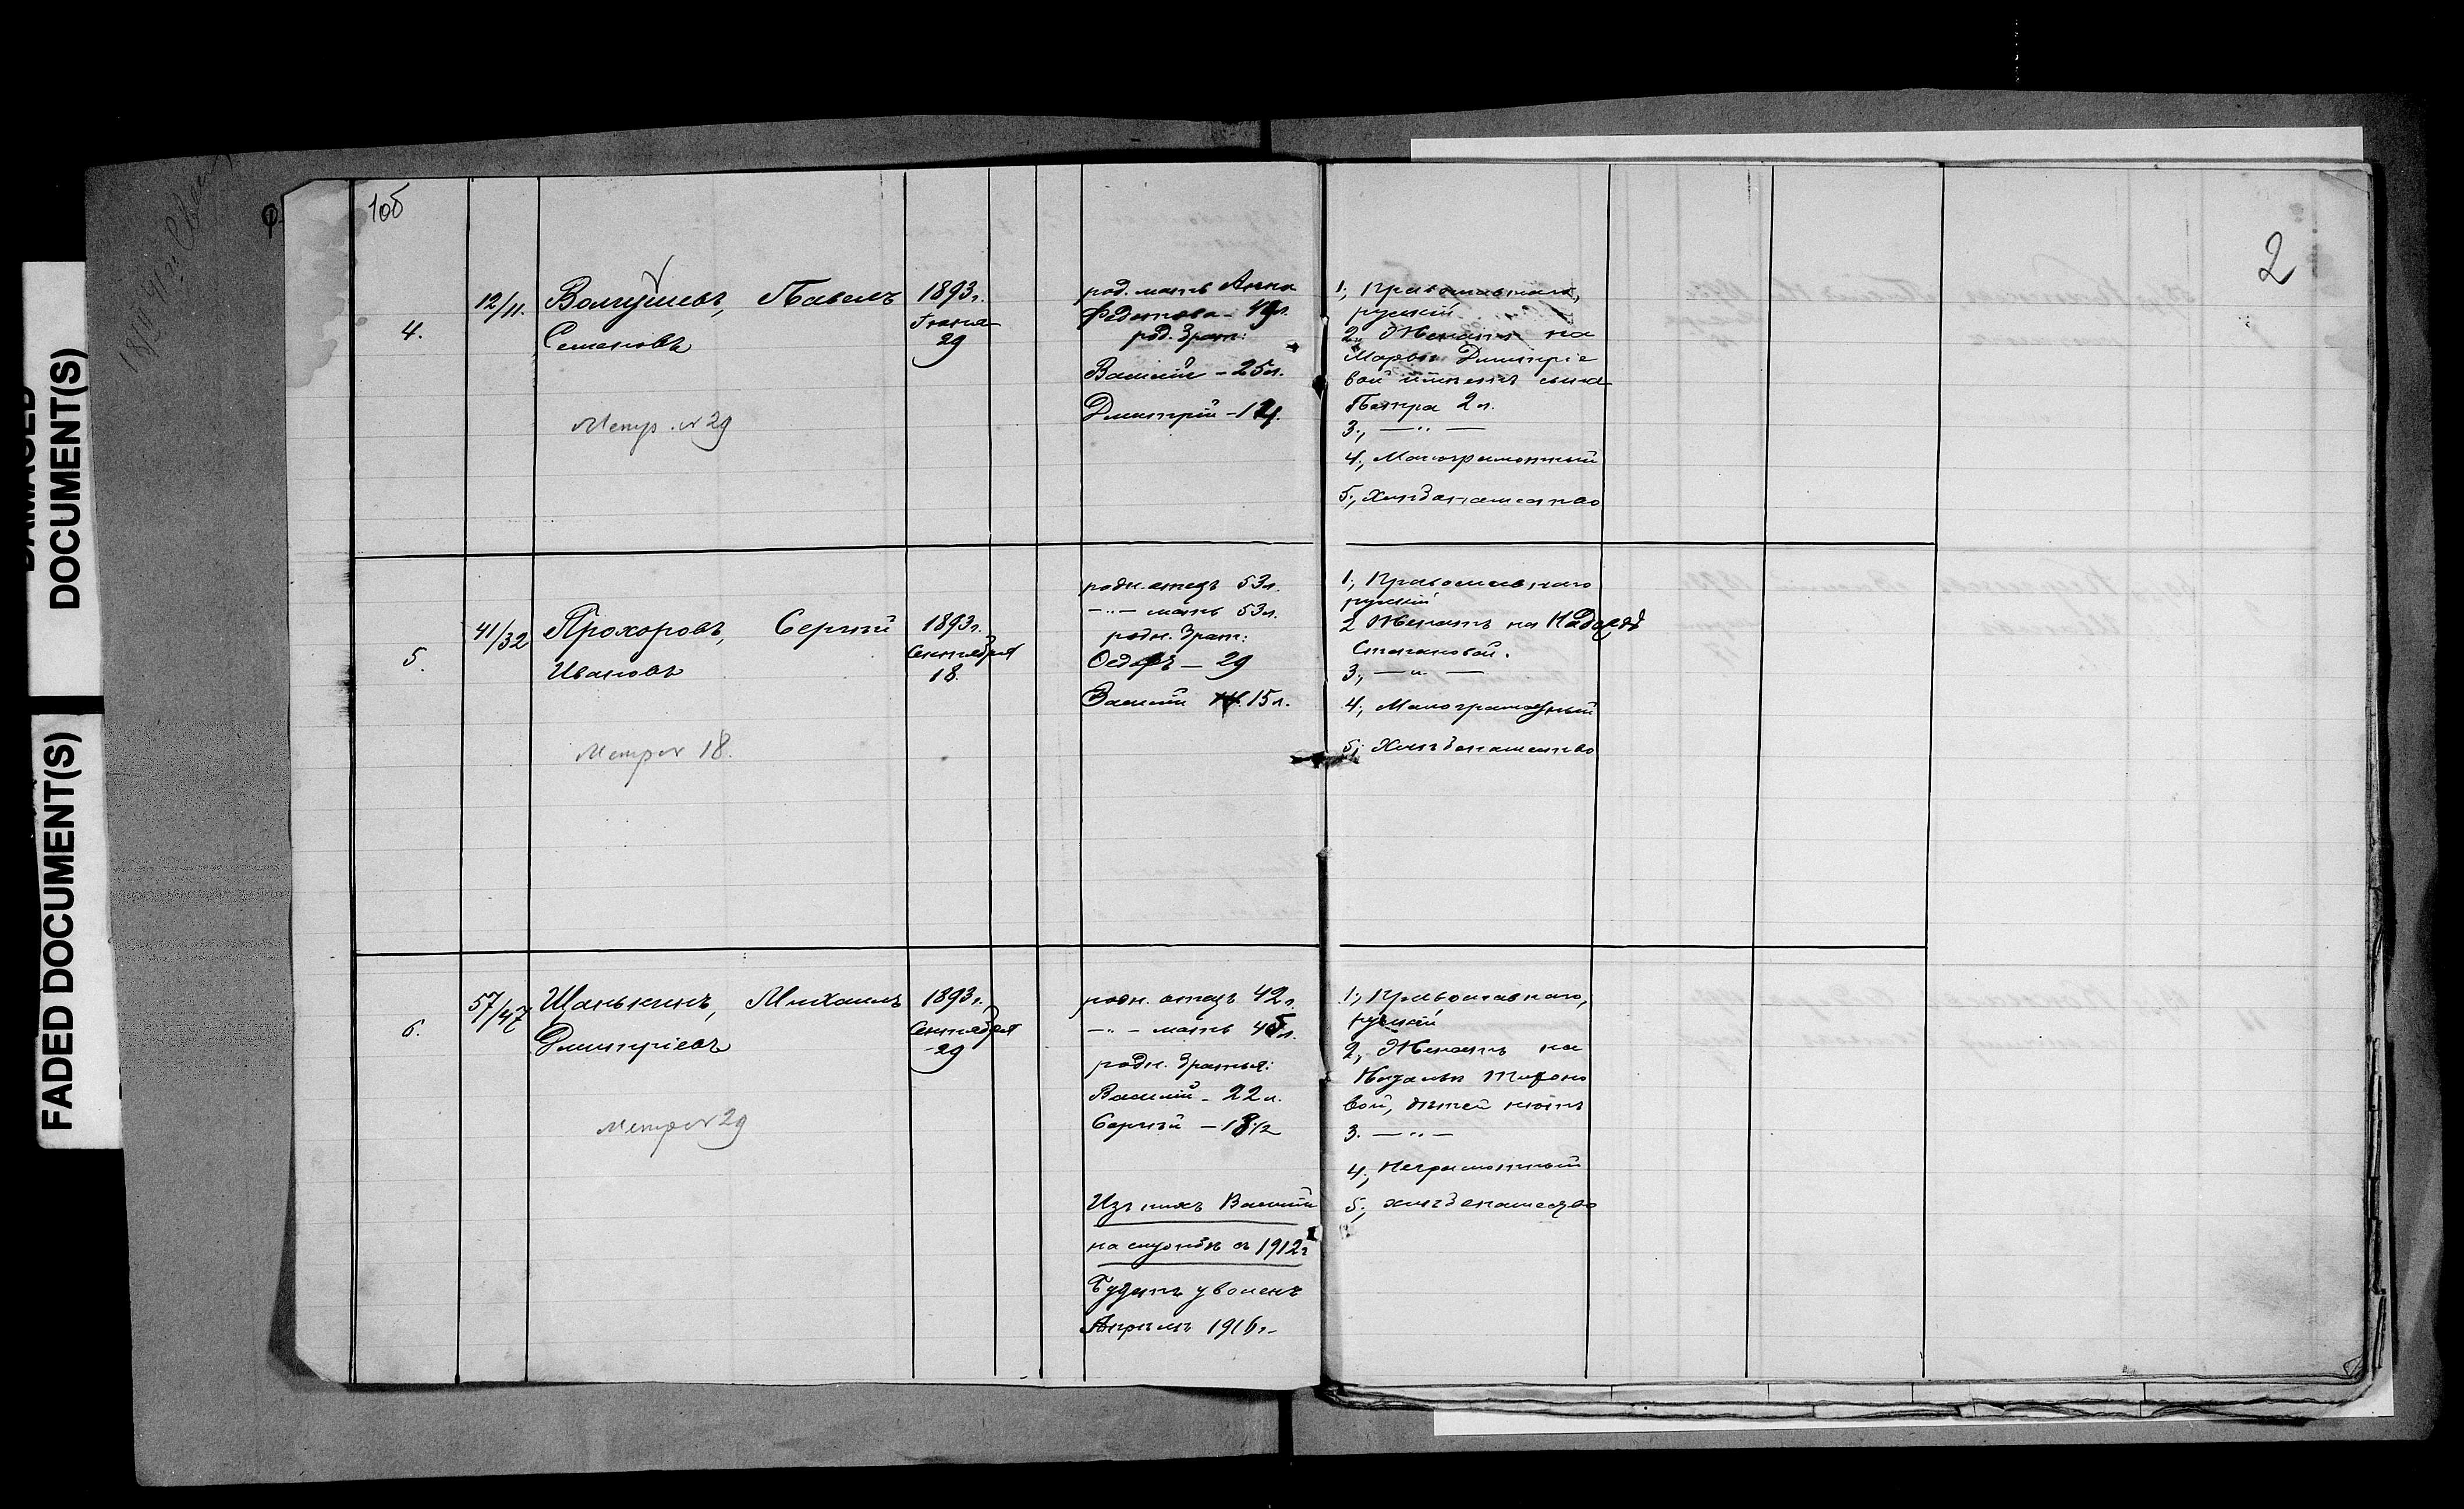 DOCUMENT(S)
FADED DOCUMENT(S)
1об
2
4.
12/11.
Павелъ
Семеновъ
Метр. № 29
1893 г.
Іюня
29
род. мать Анна
Федотова - 49 л.
род. брат:
Василій - 25 л.
Дмитрій -
1, Православнаго,
русскій
2, Женатъ на
Марѳѣ Дмитріе
вой имѣетъ сына
Петра 2 л.
3., — „ —
4., Малограмотный
5., Хлѣбопашество
5.
41/32
Прохоровъ, Сергѣй
Ивановъ
Метр № 18.
1893 г.
Сентября
18.
родн. отецъ 53 л.
— „ — мать 53 л.
родн. брат:
Ѳедоръ — 29
Василій 15 л.
1., Православнаго
русскій
2 Женатъ на
Степановой.
3., — „ —
4., Малограмотный
5., Хлѣбопашество
6.
57/47
Щанькинъ, Михаилъ
Дмитріевъ
Метр № 29
1893 г.
Сентября
29
родн. отецъ 42 г.
— „ — мать 45 л.
родн. братья:
Василій - 22 л.
Сергѣй — 18 1/2
Изъ нихъ Василій
на службѣ съ 1912 г
Будетъ уволенъ
Апрѣль 1916 г.
1., Православнаго,
русскій
2, Женатъ на
вой, дѣтей нѣтъ
3. — „ —
4., Неграмотный
5., хлѣбопашество